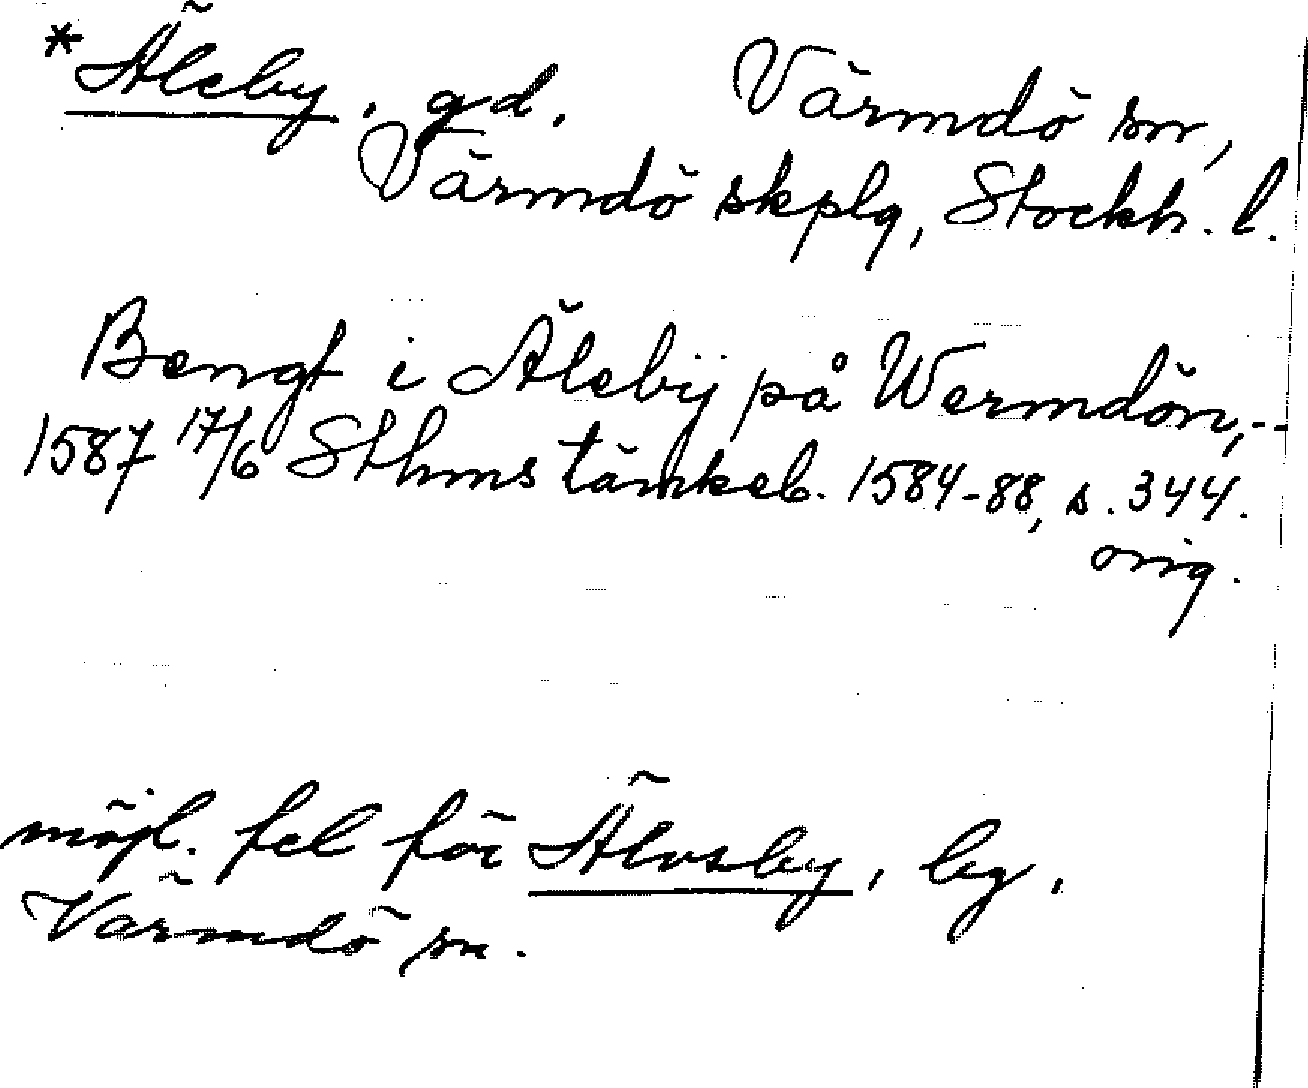 *Äleby, gd. Värmdö sn,
Värmdö skplg, Stockh. l.
Bengt i Älebÿ på Wermdön,--
1587 17/6 Sthms tänkeb. 1584-88, s. 344.
orig.
möjl. fel för Älvsby, by,
Värmdö sn.